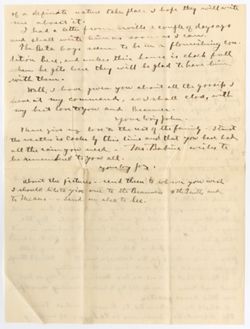 of a definite nature take place. I hope they will write
me about it.
I had a letter from Orville a couple of days ago
and shall write him as soon as I can.
The Beta boys seem to be in a flourishing con
dition here, and unless this house is chock full
when he gets here they will be glad to have him
with them.
Well, I have given you about all the gossip I
have at my command, and shall close, with
my best love to you and
Your loving John.
Please give my love to the rest of the family. I trust
the weather is cooler by this time and that you have had
all the rain you need. Mr. wishes to
be remembered to you all.
About the pictures - send them to whom you will
I should like to give one to the
and to